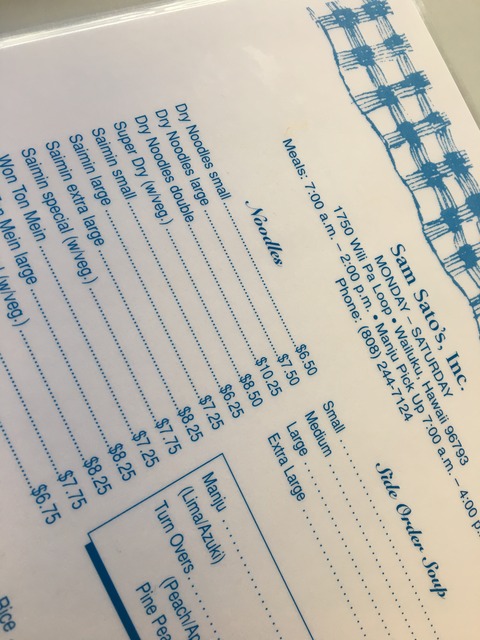 Sam Sato's, Inc.
MONDAY – SATURDAY
1750 Wili Pa Loop • Wailuku, Hawaii 96793
Meals: 7:00 a.m. – 2:00 p.m. • Manju Pick Up 7:00 a.m. – 4:00 p.
Phone: (808) 244-7124
Noodles
Dry Noodles small $6.50
Dry Noodles large $7.50
Dry Noodles double $10.25
Super Dry (w/veg.) $8.50
Saimin small $6.25
Saimin large $7.25
Saimin extra large $8.25
Saimin special (w/veg.) $7.75
Won Ton Mein $7.25
Mein large $8.25
(w/veg.) $8.25
$7.75
$6.75
Side Order Soup
Small
Medium
Large
Extra Large
Manju
(Lima/Azuki)
Turn Overs
(Peach/Ap
Pine Pea
Rice